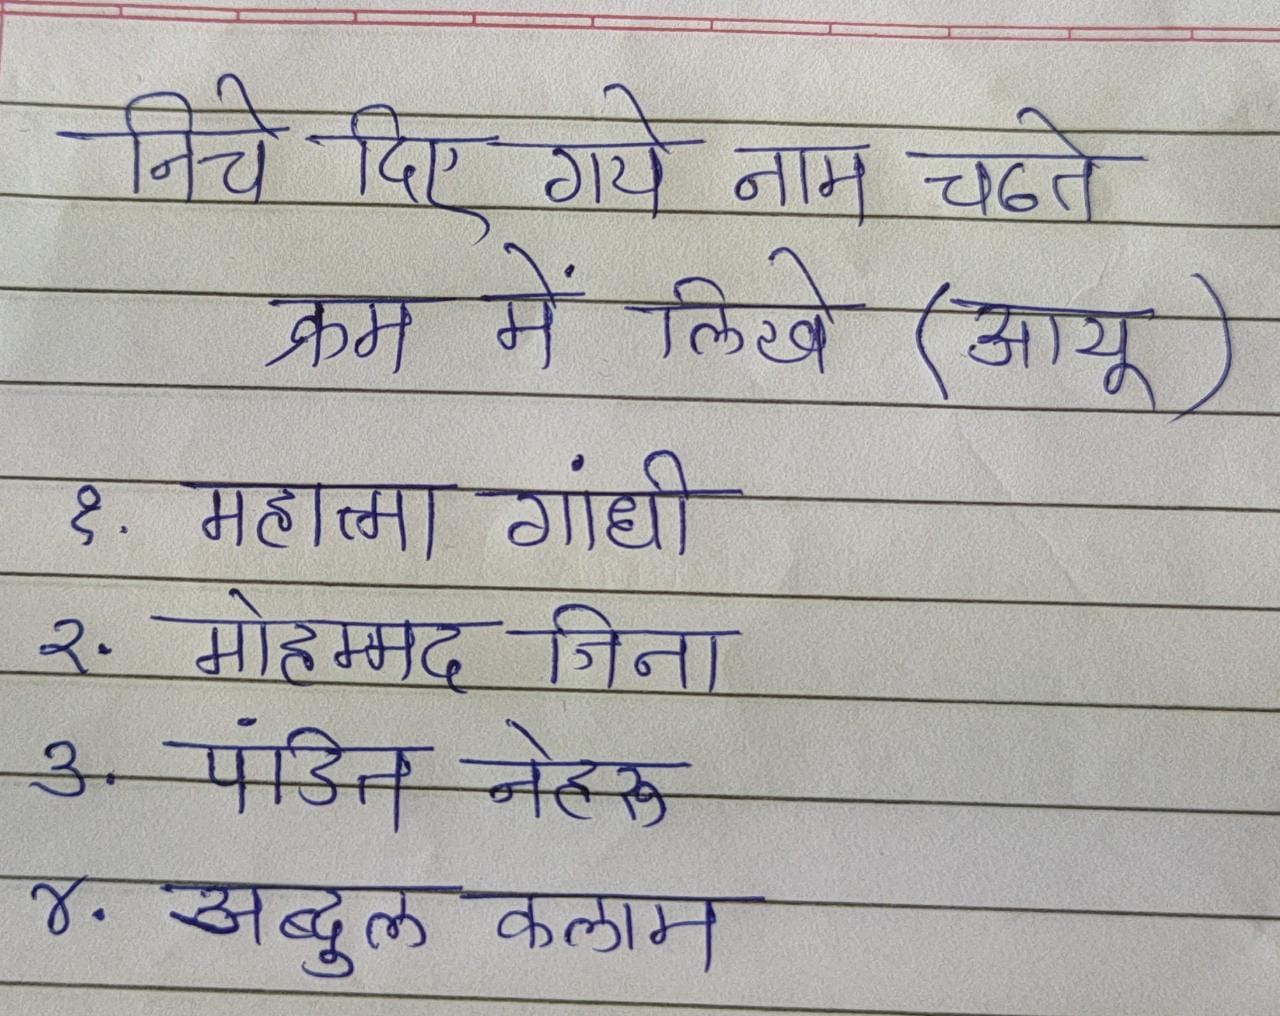 निचे दिए गये नाम चढते
क्रम में लिखे (आयू)
१. महात्मा गांधी
२. मोहम्मद जिना
३. पंडित नेहरू
४. अब्दुल कलाम